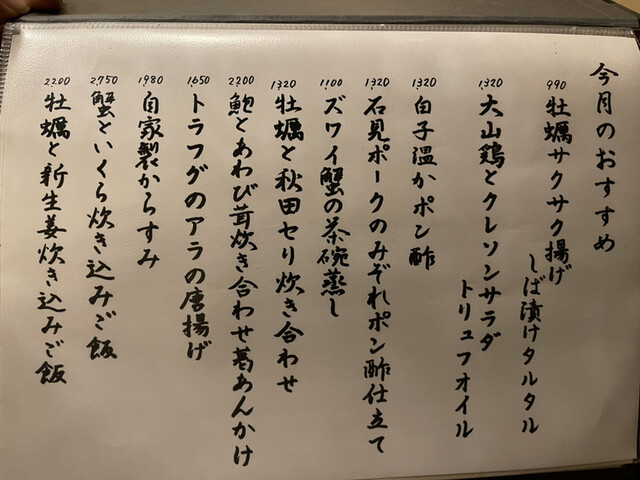 今月のおすすめ
990
牡蠣サクサク揚げ
しば漬けタルタル
1,320
大山鶏とクレソンサラダ
トリュフオイル
1,320
白子温かポン酢
1,320
石見ポークのみぞれポン酢仕立て
1,100
ズワイ蟹の茶碗蒸し
1,320
牡蠣と秋田セリ炊き合わせ
2,200
鮑とあわび茸炊き合わせ葛あんかけ
1,650
トラフグのアラの唐揚げ
1,980
自家製からすみ
2,750
蟹といくら炊き込みご飯
2,200
牡蠣と新生姜炊き込みご飯